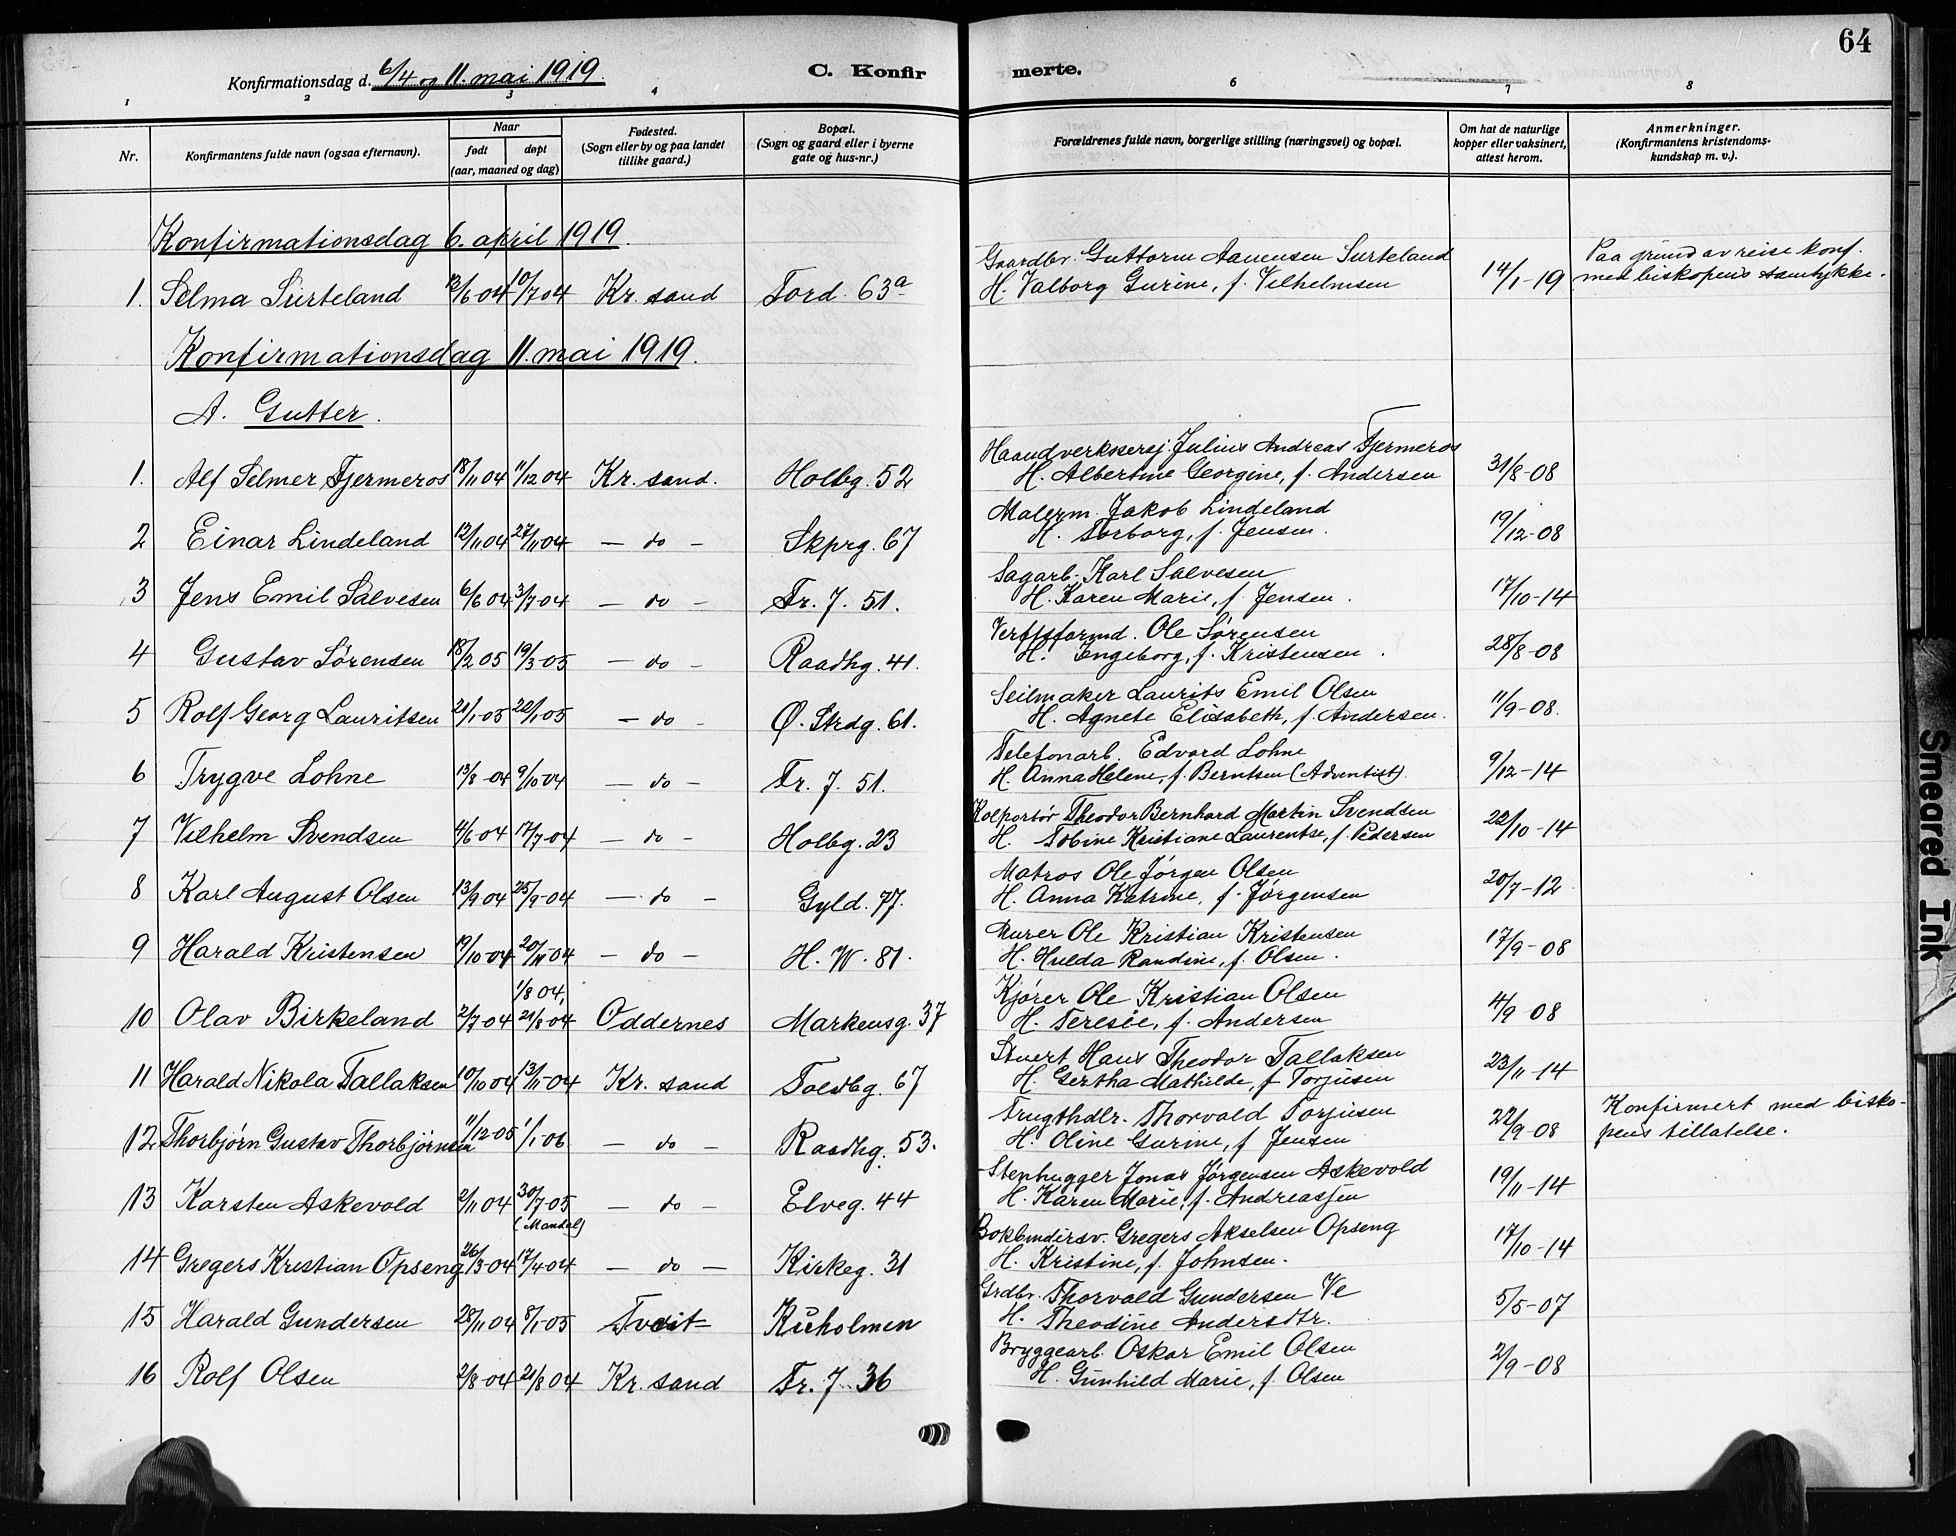 64
Konfirmationsdag d. 6/4 og 11. mai 1919.
C. Konfirmerte.
1 2 3 4 6 7 8
Nr.
Konfirmantens fulde navn (ogsaa efternavn).
Naar
født
døpt
(aar, maaned og dag)
Fødested.
(Sogn eller by og paa landet
tillike gaard.)
Bopæl.
(Sogn og gaard eller i byerne
gate og hus-nr.)
Forældrenes fulde navn, borgerlige stilling (næringsvei) og bopæl.
Om hat de naturlige
kopper eller vaksinert,
attest herom.
Anmerkninger.
(Konfirmantens kristendoms-
kundskap m. v.).
Konfirmationsdag 6. april 1919.
1. Selma Surteland 12/6 04 10/7 04 Kr. sand Tord. 63a Gaardbr. Guttorm Aanensen Surteland
H. Valborg Gurine, f. Vilhelmsen 14/1-19 Paa grund av reise konf.
med biskopens samtykke.
Konfirmationsdag 11. mai 1919.
A. Gutter.
1. Alf Selmer Fjermeros 18/11 04 11/12 04 Kr. sand. Holbg. 52 Haandverkssvej Julius Andreas Fjermeros
H. Albertine Georgine, f. Andersen 31/8-08
2 Einar Lindeland 12/11 04 27/11 04 — do — Skprg. 67 Malerm. Jakob Lindeland
H. Torborg, f. Jensen. 19/12-08
3 Jens Emil Salvesen 6/6 04 3/7 04 — do — Fr. 7. 51. Sagarb. Karl Salvesen
H. Karen Marie, f. Jensen. 17/10-14
4 Gustav Sørensen 18/2 05 19/3-05 — do — Raadhg. 41. Verftsformd. Ole Sørensen
H. Engeborg, f. Kristensen. 28/8-08
5 Rolf Georg Lauritsen 21/1-05 22/1 05 — do — Ø. Strdg. 61. Seilmaker Laurits Emil Olsen
H. Agnete Elisabeth, f. Andersen. 11/9-08.
6 Trygve Lohne 13/8-04 9/10-04 — do — Fr. 7. 51. Telefonarb. Edvard Lohne
H. Anna Helene, f. Berntsen (Adventist). 9/12-14
7 Vilhelm Svendsen 4/6 04 17/7-04 — do — Holbg. 23 Kolportør Theodor Bernhard Martin Svendsen
H. Tobine Kristiane Laurentse, f. Pedersen 22/10-14
8 Karl August Olsen 13/9 04 25/9-04 — do — Gyld. 77. Matros Ole Jørgen Olsen
H. Anna Katrine, f. Jørgensen 20/7-12
9 Harald Kristensen 19/10-04 20/11-04 — do — H. W. 81. Murer Ole Kristian Kristensen
H. Hulda Randine, f. Olsen. 17/9-08
1/8 04,
10 Olav Birkeland 2/7-04 21/8-04 Oddernes Markensg. 37 Kjører Ole Kristian Olsen
H. Teresie, f. Andersen 4/9 08
11 Harald Nikola Tallaksen 10/10 04 13/11-04 Kr. sand Toldbg. 67 Stuert Hans Theodor Tallaksen
H. Gertha Mathilde, f. Torjusen 23/11-14
12 Thorbjørn Gustav Thorbjørnsen 11/12-05 1/1-06 — do — Raadhg. 53. Frugthdlr. Thorvald Torjusen
H. Oline Gurine, f. Jensen 22/9-08 Konfirmert med bisko-
pens tillatelse.
13 Karsten Askevold 2/11 04 30/7-05 — do — Elveg. 44 Stenhugger Jonas Jørgensen Askevold
(Mandal) H. Karen Marie, f. Andreassen 19/11-14
14 Gregers Kristian Opseng 26/3-04 17/4-04 — do — Kirkeg. 31 Bokbindersv. Gregers Akselsen Opseng
H. Kristine, f. Johnsen. 17/10-14
15 Harald Gundersen 28/11 04 8/1-05 Tveit Kuholmen Grdbr. Thorvald Gundersen Ve
H. Theodine Andersdtr. 5/5-07
16 Rolf Olsen 2/8-04 21/8 04 Kr. sand Fr. 7. 36 Bryggearb. Oskar Emil Olsen
H. Gunhild Marie, f. Olsen 2/9-08
Smeared Ink